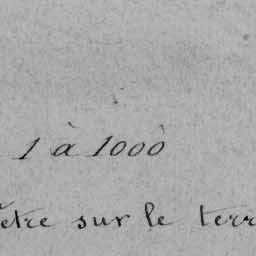 1 à 1000
ètre sur le terr